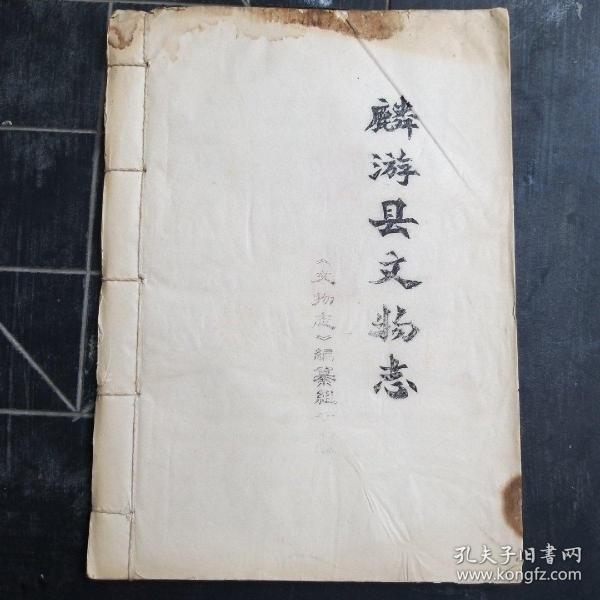 麟游县文物志
《文物志》編纂組
孔夫子旧书网
www.kongfz.com